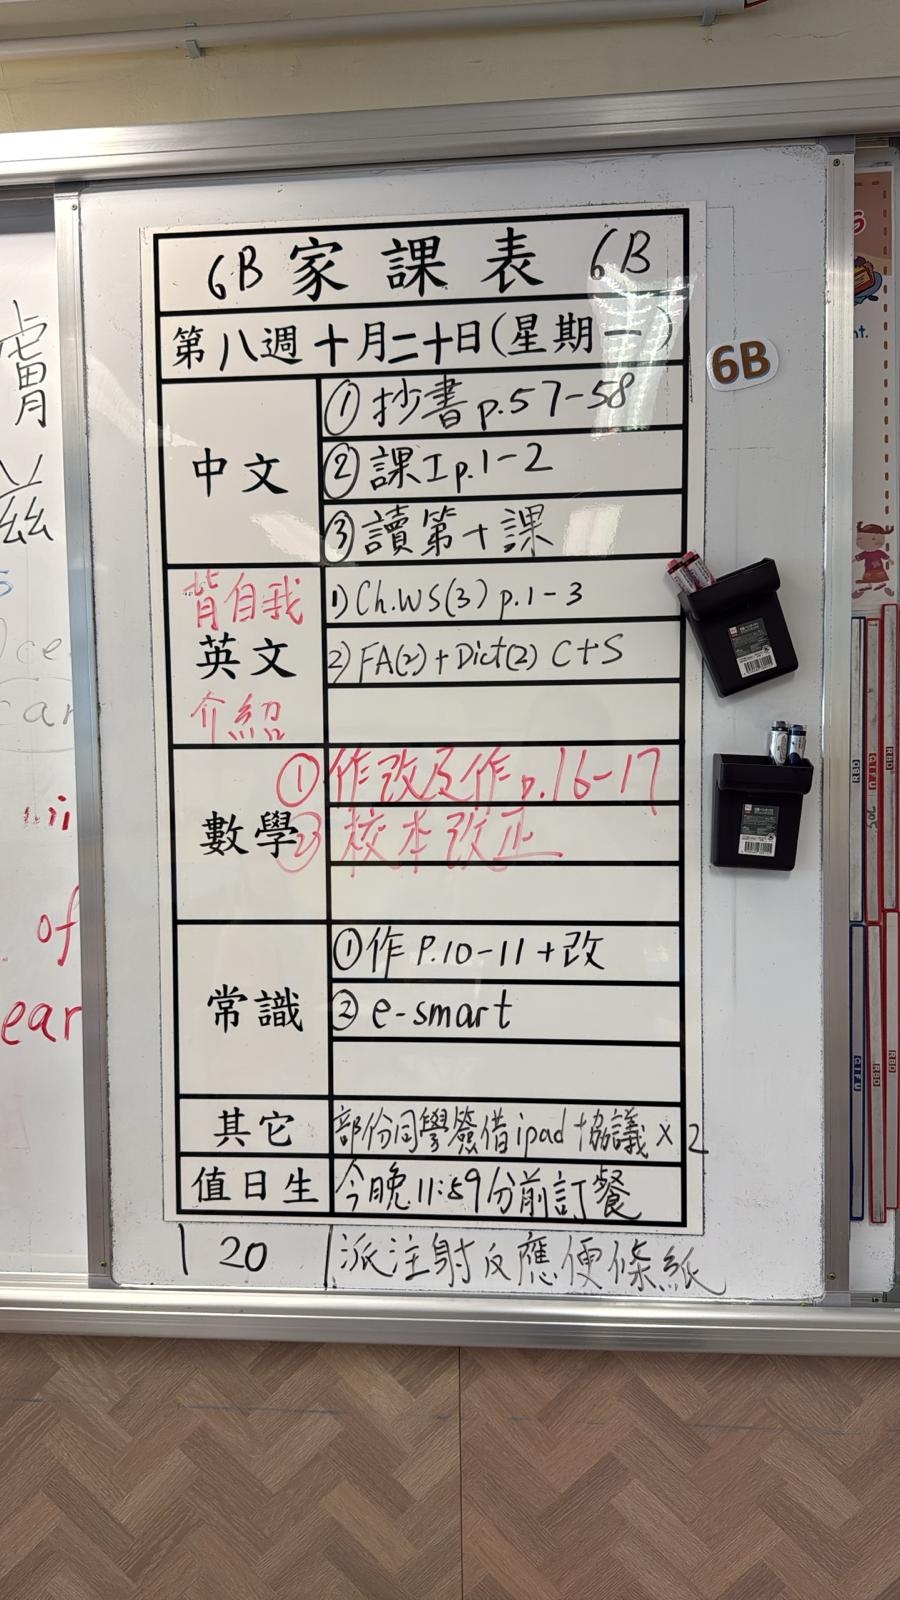 6B 家課表 6B
第八週十月二十日(星期一)
6B
中文
①抄書p.57-58
②課工p.1-2
③讀第十課
背自我
英文
介紹
1)Ch.WS(3) p.1-3
2)FA(2)+Dict(2) C+S
數學
①作改及作p.16-17
②校本改正
常識
①作P.10-11+改
②e-smart
其它
部份同學簽借ipad協議×2
值日生
今晚11:59分前訂餐
20
派注射反應便條紙
膚
of
ear